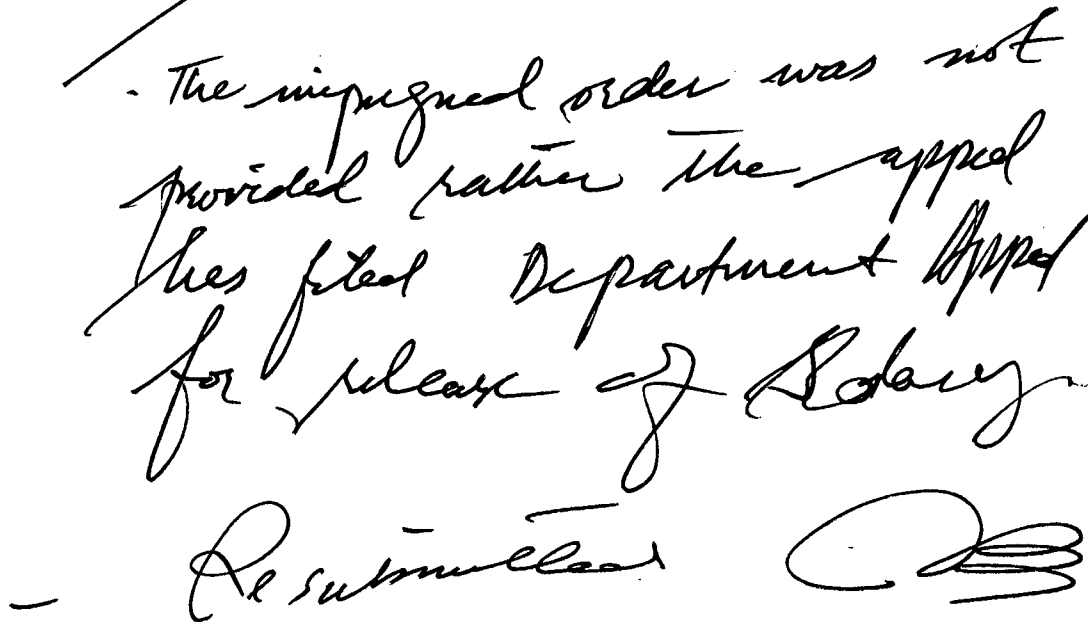 The impugned order was not
provided rather the appel
has filed Department Appel
for release of Salary
Resubmitted